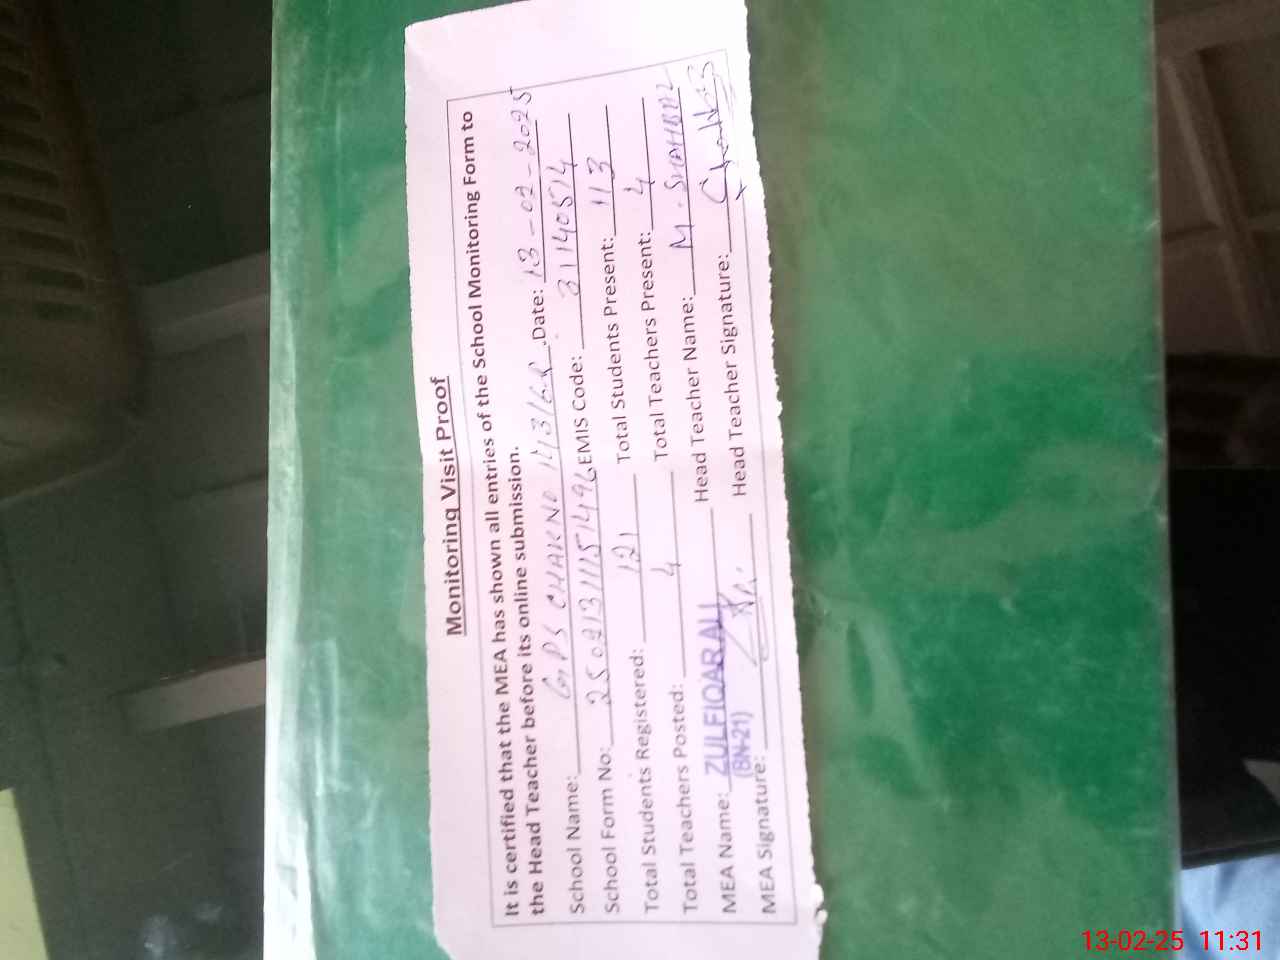 Monitoring Visit Proof
It is certified that the MEA has shown all entries of the School Monitoring Form to
the Head Teacher before its online submission.
School Name: GPS CHAK NO Date: 13-02-2025
School Form No: EMIS Code: 31140514
Total Students Registered: 121 Total Students Present: 113
Total Teachers Posted: 4 Total Teachers Present: 4
MEA Name: ZULFIQAR ALI Head Teacher Name: M.
(BN-21)
MEA Signature: Head Teacher Signature:
13-02-25 11:31